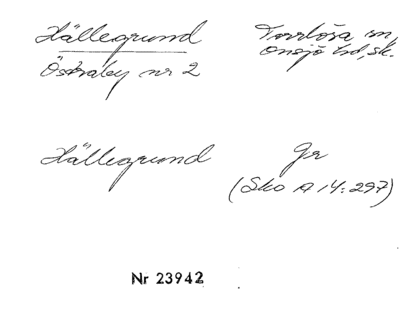 Hällegrund
Torrlösa sn,
Onsjö hd, Sk.
Östraby nr 2
Hällegrund
Gr
(Sko A 14:297)
Nr 23942